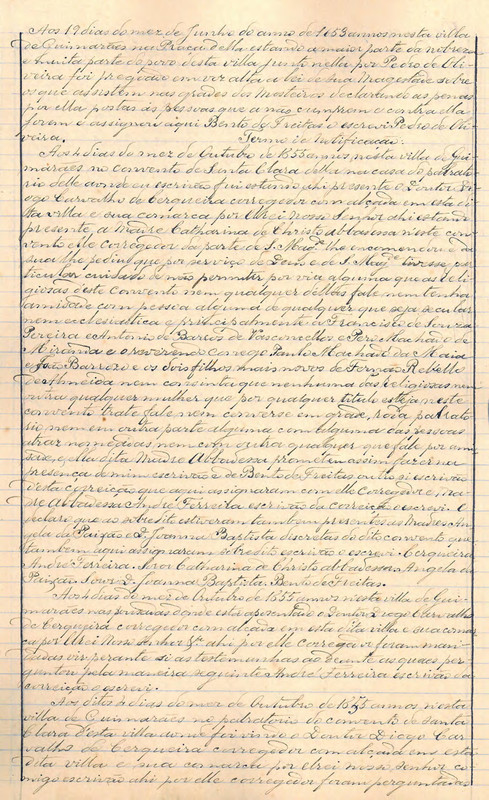 Aos 19 dias do mez de Junho do anno de 1653 annos nesta villa
de Guimarães na Praça della estando a maior parte da nobreza
e muita parte do povo desta villa junto nella por Pedro de Oli-
veira foi pregoado em voz alta a lei de sua Magestade sobre
os que assistem nas grades dos Mosteiros declarando as penas
por ella postas ás pessoas que a não cumprem e contra ella
forem e assignou aqui Bento de Freitas o escrevi Pedro de Oli-
veira.
Termo de Notificação.
Aos 4 dias do mez de Outubro de 1655 annos nesta villa de Gui-
marães no convento de Santa Clara della na casa do palrato-
rio delle aonde eu escrivão fui estando ahi presente o Doutor Di-
ogo Carvalho de Cerqueira corregedor com alçada em esta di-
ta villa e sua comarca por elrei Nosso Senhor ahi estando
presente a Madre Catharina de Christo abbadessa neste con-
vento elle corregedor da parte de S. Magde lhe encomendou e da
sua lhe pediu que por serviço de Deus e de S. Magde tivesse par-
ticular cuidado de não permittir por via alguma que as reli-
giosas deste convento nem qualquer dellas fale nem tenha
amizade com pessoa alguma de qualquer que seja secular
nem ecclesiastica e principalmente a Francisco de Souza
Pereira e Antonio de Barros de Vasconcellos e Pero Machado de
Miranda e o reverendo conego Paulo Machado da Maia
e João Barrozo e os dois filhos mais novos de Fernão Rebello
de Almeida nem consinta que nenhuma das religiosas nem
outra qualquer mulher que por qualquer titulo esteja neste
convento trate fale nem converse em grade, roda palrato-
rio nem em outra parte alguma com alguma das pessoas
atraz nomeadas nem com outra qualquer que fale por ami-
zade, e ella dita Madre Abbadessa prometeu assim fazer na
presença de mim escrivão e de Bento de Freitas outrosi escrivão
desta correição que aqui assignaram com elle Corregedor e Ma-
dre Abbadessa André Ferreira escrivão da correição o escrevi. E
declaro que ao sobredito estiveram tambem presentes as Madres An-
gela da Paixão e D. Joanna Baptista discretas do dito convento que
tambem aqui assignaram sobredito escrivão o escrevi. Cerqueira
André Ferreira. Soror Catharina de Christo abbadessa. Angela da
Paixão. Soror D. Joanna Baptista. Bento de Freitas.
Aos 4 dias do mez de Outubro de 1655 annos nesta villa de Gui-
marães nas pousadas donde está aposentado o Doutor Diogo Carvalho
de Cerqueira corregedor com alçada em esta dita villa e sua comar-
ca por elrei Nosso Senhor &ª ahi por elle Corregedor foram man-
dadas vir perante si as testemunhas ao deante as quaes per-
guntou pela maneira seguinte André Ferreira escrivão da
correição o escrevi.
Aos ditos 4 dias do mez de Outubro de 1655 annos nesta
villa de Guimarães no palratorio do convento de Santa
Clara desta villa aonde foi vindo o Doutor Diogo Car-
valho de Cerqueira corregedor com alçada em esta
dita villa e sua comarca por elrei nosso senhor co-
migo escrivão ahi por elle corregedor foram perguntadas